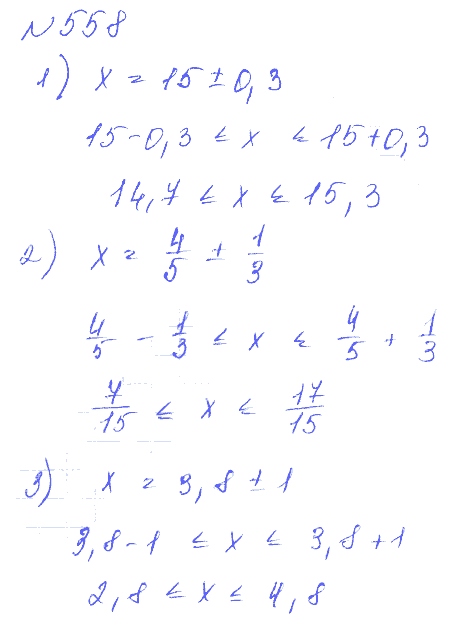 N 558
1) x = 15 ± 0,3
15 - 0,3 ≤ x ≤ 15 + 0,3
14,7 ≤ x ≤ 15,3
2) x = 4/5 ± 1/3
4/5 - 1/3 ≤ x ≤ 4/5 + 1/3
7/15 ≤ x ≤ 17/15
3) x = 3,8 ± 1
3,8 - 1 ≤ x ≤ 3,8 + 1
2,8 ≤ x ≤ 4,8